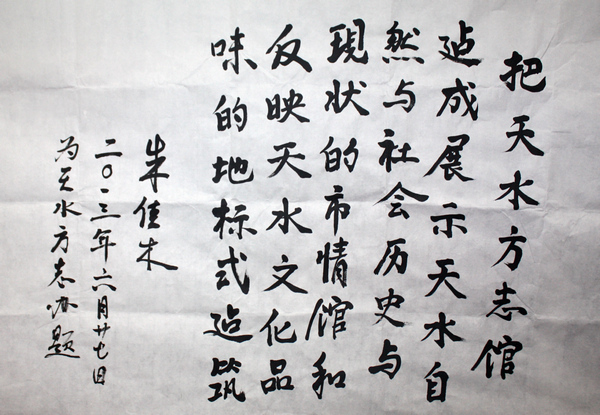 把天水方志馆
建成展示天水自
然与社会历史与
现状的市情馆和
反映天水文化品
味的地标式建筑
朱佳木
二〇一三年六月廿七日
为天水方志办题